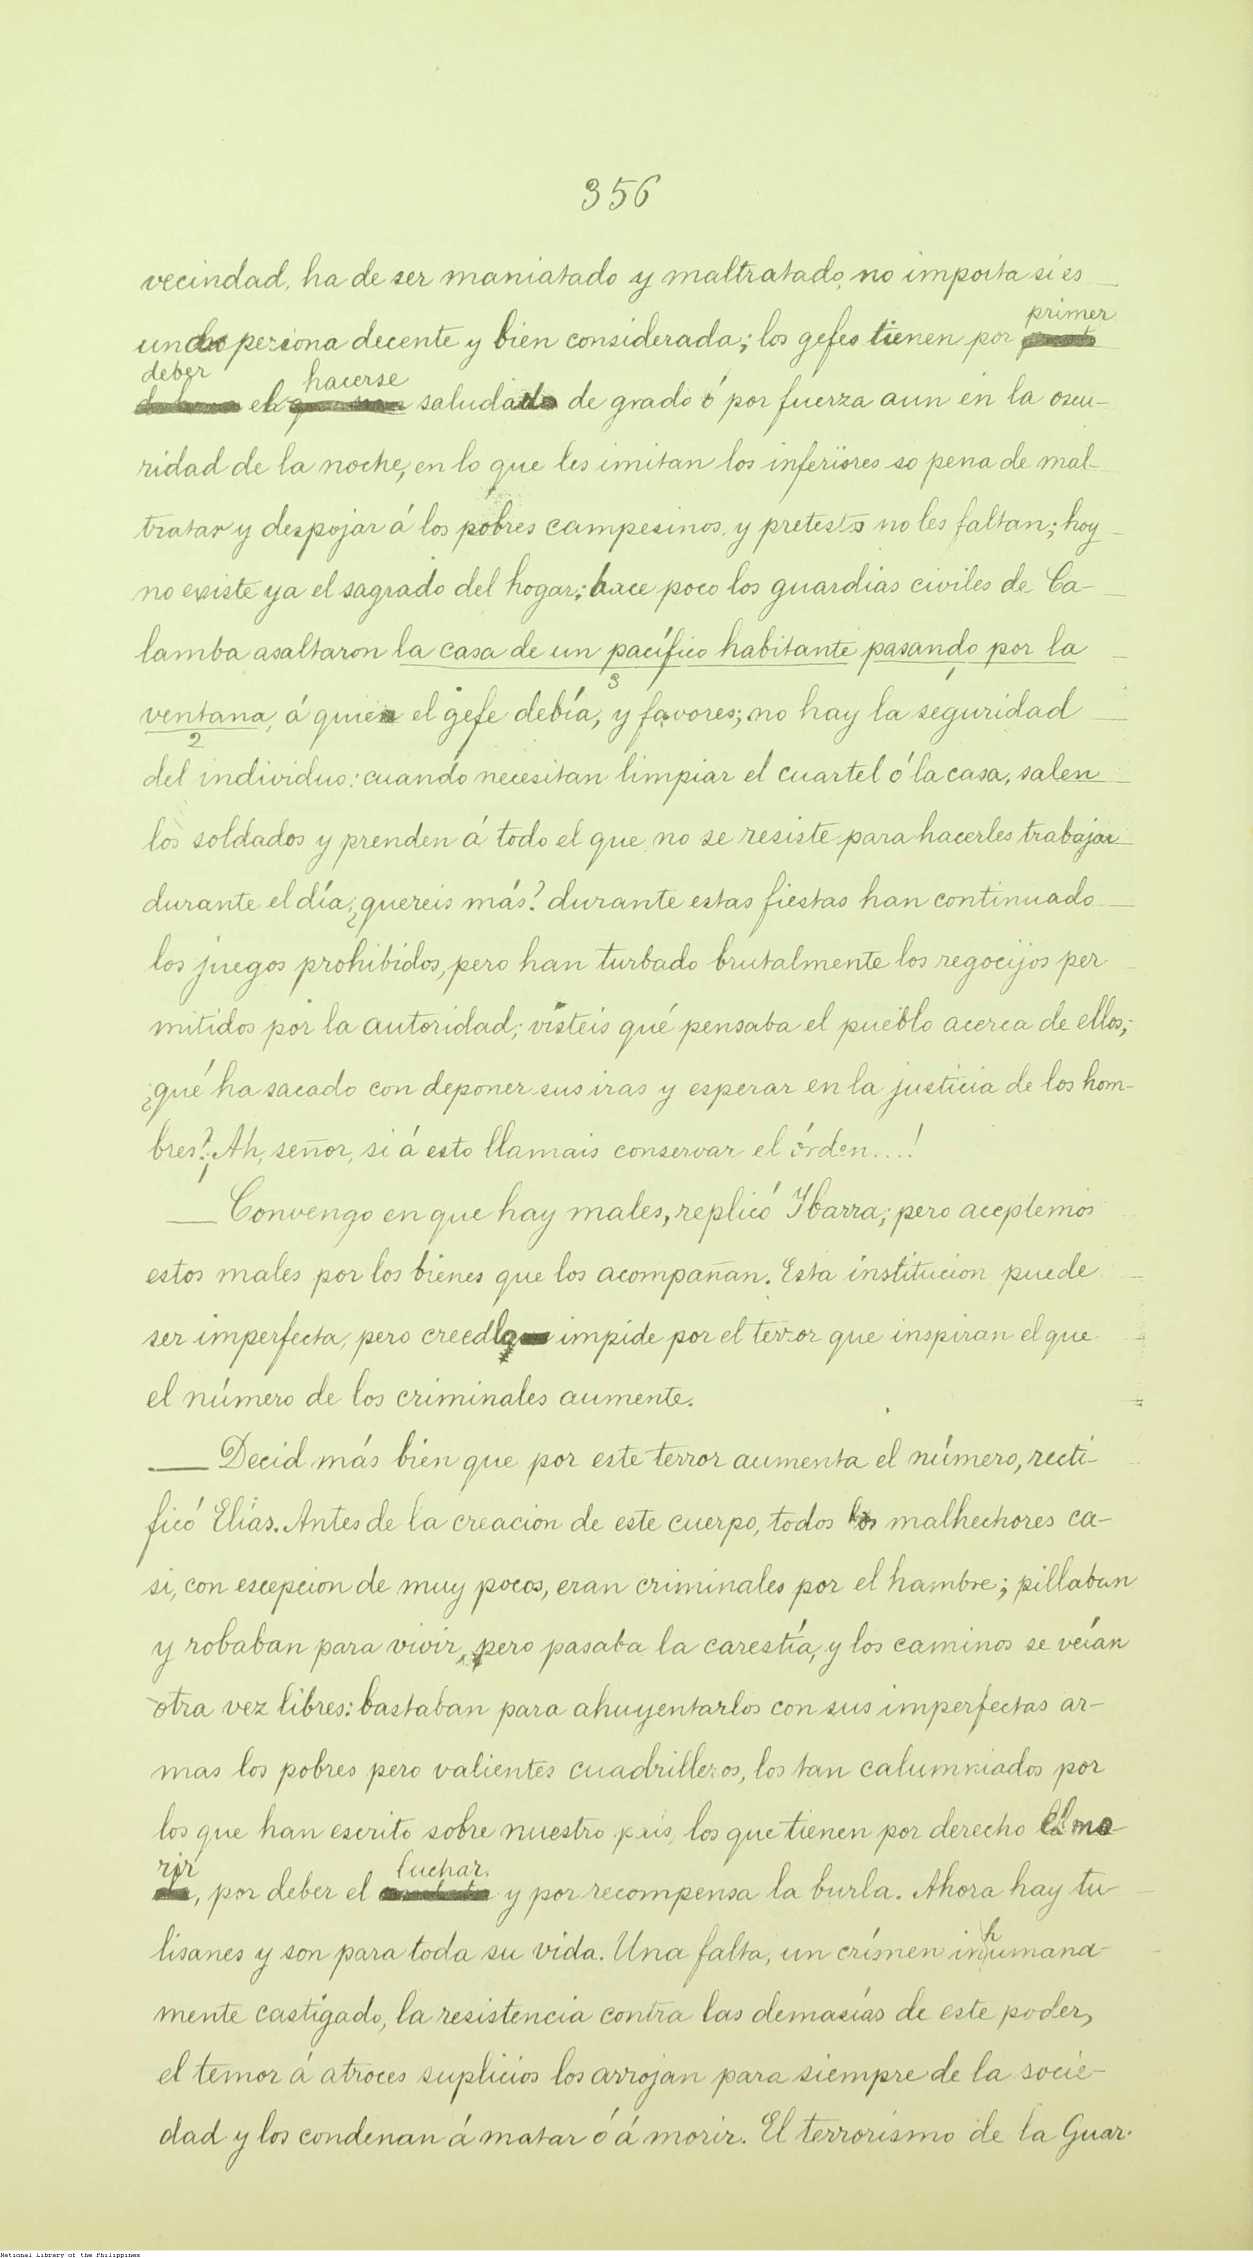 356
vecindad, ha de ser maniatado y maltratado, no importa si es
una persona decente y bien considerada; los gefes tienen por primer
deber el hacerse saludado de grado ó por fuerza aun en la oscu-
ridad de la noche, en lo que les imitan los inferiores so pena de mal-
tratar y despojar á los pobres campesinos, y pretestos no les faltan; hoy
no existe ya el sagrado del hogar; hace poco los guardias civiles de Ca-
lamba asaltaron la casa de un pacífico habitante pasando por la
3 1
ventana, á quien el gefe debía, y favores; no hay la seguridad
2
del individuo: cuando necesitan limpiar el cuartel ó la casa, salen
los soldados y prenden á todo el que no se resiste para hacerles trabajar
durante el día; ¿quereis más? durante estas fiestas han continuado
los juegos prohibidos, pero han turbado brutalmente los regocijos per
mitidos por la autoridad; visteis qué pensaba el pueblo acerca de ellos;
¿qué ha sacado con deponer sus iras y esperar en la justicia de los hom-
bres? ¡Ah, señor, si á esto llamais conservar el órden....!
— Convengo en que hay males, replicó Ibarra; pero aceptemos
estos males por los bienes que los acompañan. Esta institucion puede
ser imperfecta, pero creedlo impide por el terror que inspiran el que
el número de los criminales aumente.
— Decid más bien que por este terror aumenta el número, recti-
ficó Elías. Antes de la creacion de este cuerpo, todos los malhechores ca-
si, con escepcion de muy pocos, eran criminales por el hambre; pillaban
y robaban para vivir, pero pasaba la carestía, y los caminos se veían
otra vez libres: bastaban para ahuyentarlos con sus imperfectas ar-
mas los pobres pero valientes cuadrilleros, los tan calumniados por
los que han escrito sobre nuestro país, los que tienen por derecho el mo
rir, por deber el luchar y por recompensa la burla. Ahora hay tu
lisanes y son para toda su vida. Una falta, un crímen inhumana-
mente castigado, la resistencia contra las demasías de este poder,
el temor á atroces suplicios los arrojan para siempre de la socie-
dad y los condenan á matar ó á morir. El terrorismo de la Guar-
National Library of the Philippines